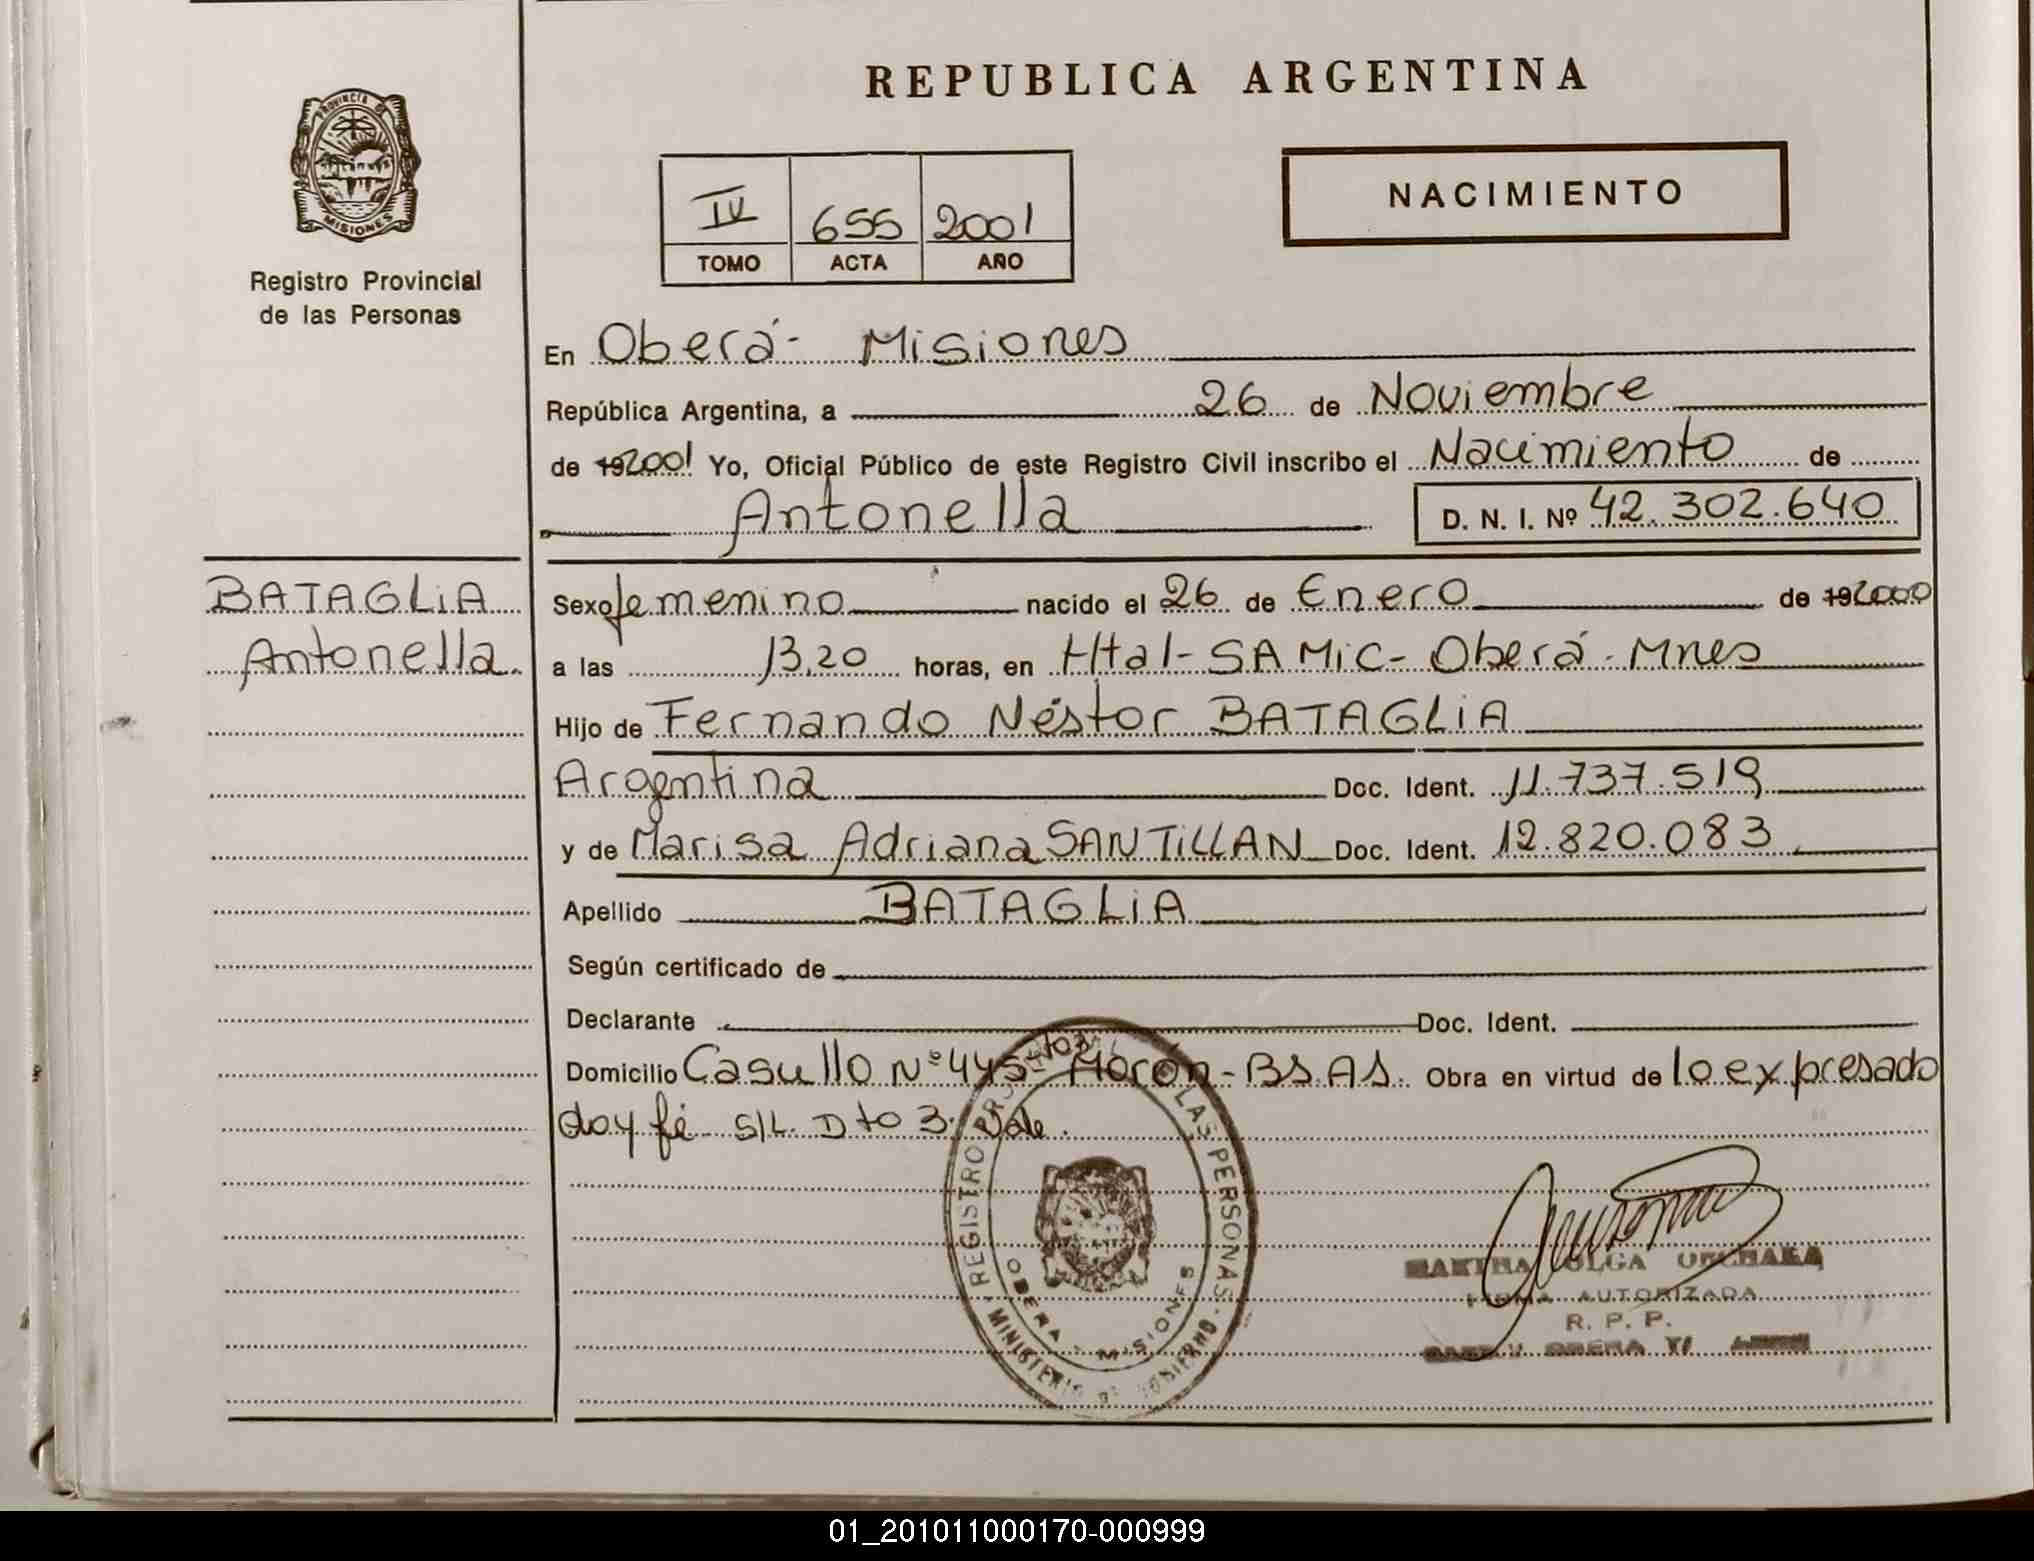 REPUBLICA ARGENTINA
PROVINCIA DE
MISIONES
Registro Provincial
de las Personas
IV 655 2001
TOMO ACTA AÑO
NACIMIENTO
En Oberá - Misiones
República Argentina, a 26 de Noviembre
de 192001 Yo, Oficial Público de este Registro Civil inscribo el Nacimiento de
Antonella D. N. I. Nº 42.302.640
BATAGLiA
Antonella.
Sexo femenino nacido el 26 de Enero de 192000
a las 13,20 horas, en Htal - SAMiC - Oberá - Mnes
Hijo de Fernando Néstor BATAGLiA
Argentina Doc. Ident. 11.737.519
y de Marisa Adriana SANTiLLAN Doc. Ident. 12.820.083
Apellido BATAGLiA
Según certificado de
Declarante Doc. Ident.
Domicilio Casullo Nº 445 Morón - BS.AS. Obra en virtud de lo expresado
doy fé S/L. Dto 3. Vale.
REGISTRO LAS PERSONAS
OBERA - MISIONES
MINISTERIO DE GOBIERNO
MARTHA OLGA
FIRMA AUTORIZADA
R. P. P.
OBERA
01_201011000170-000999